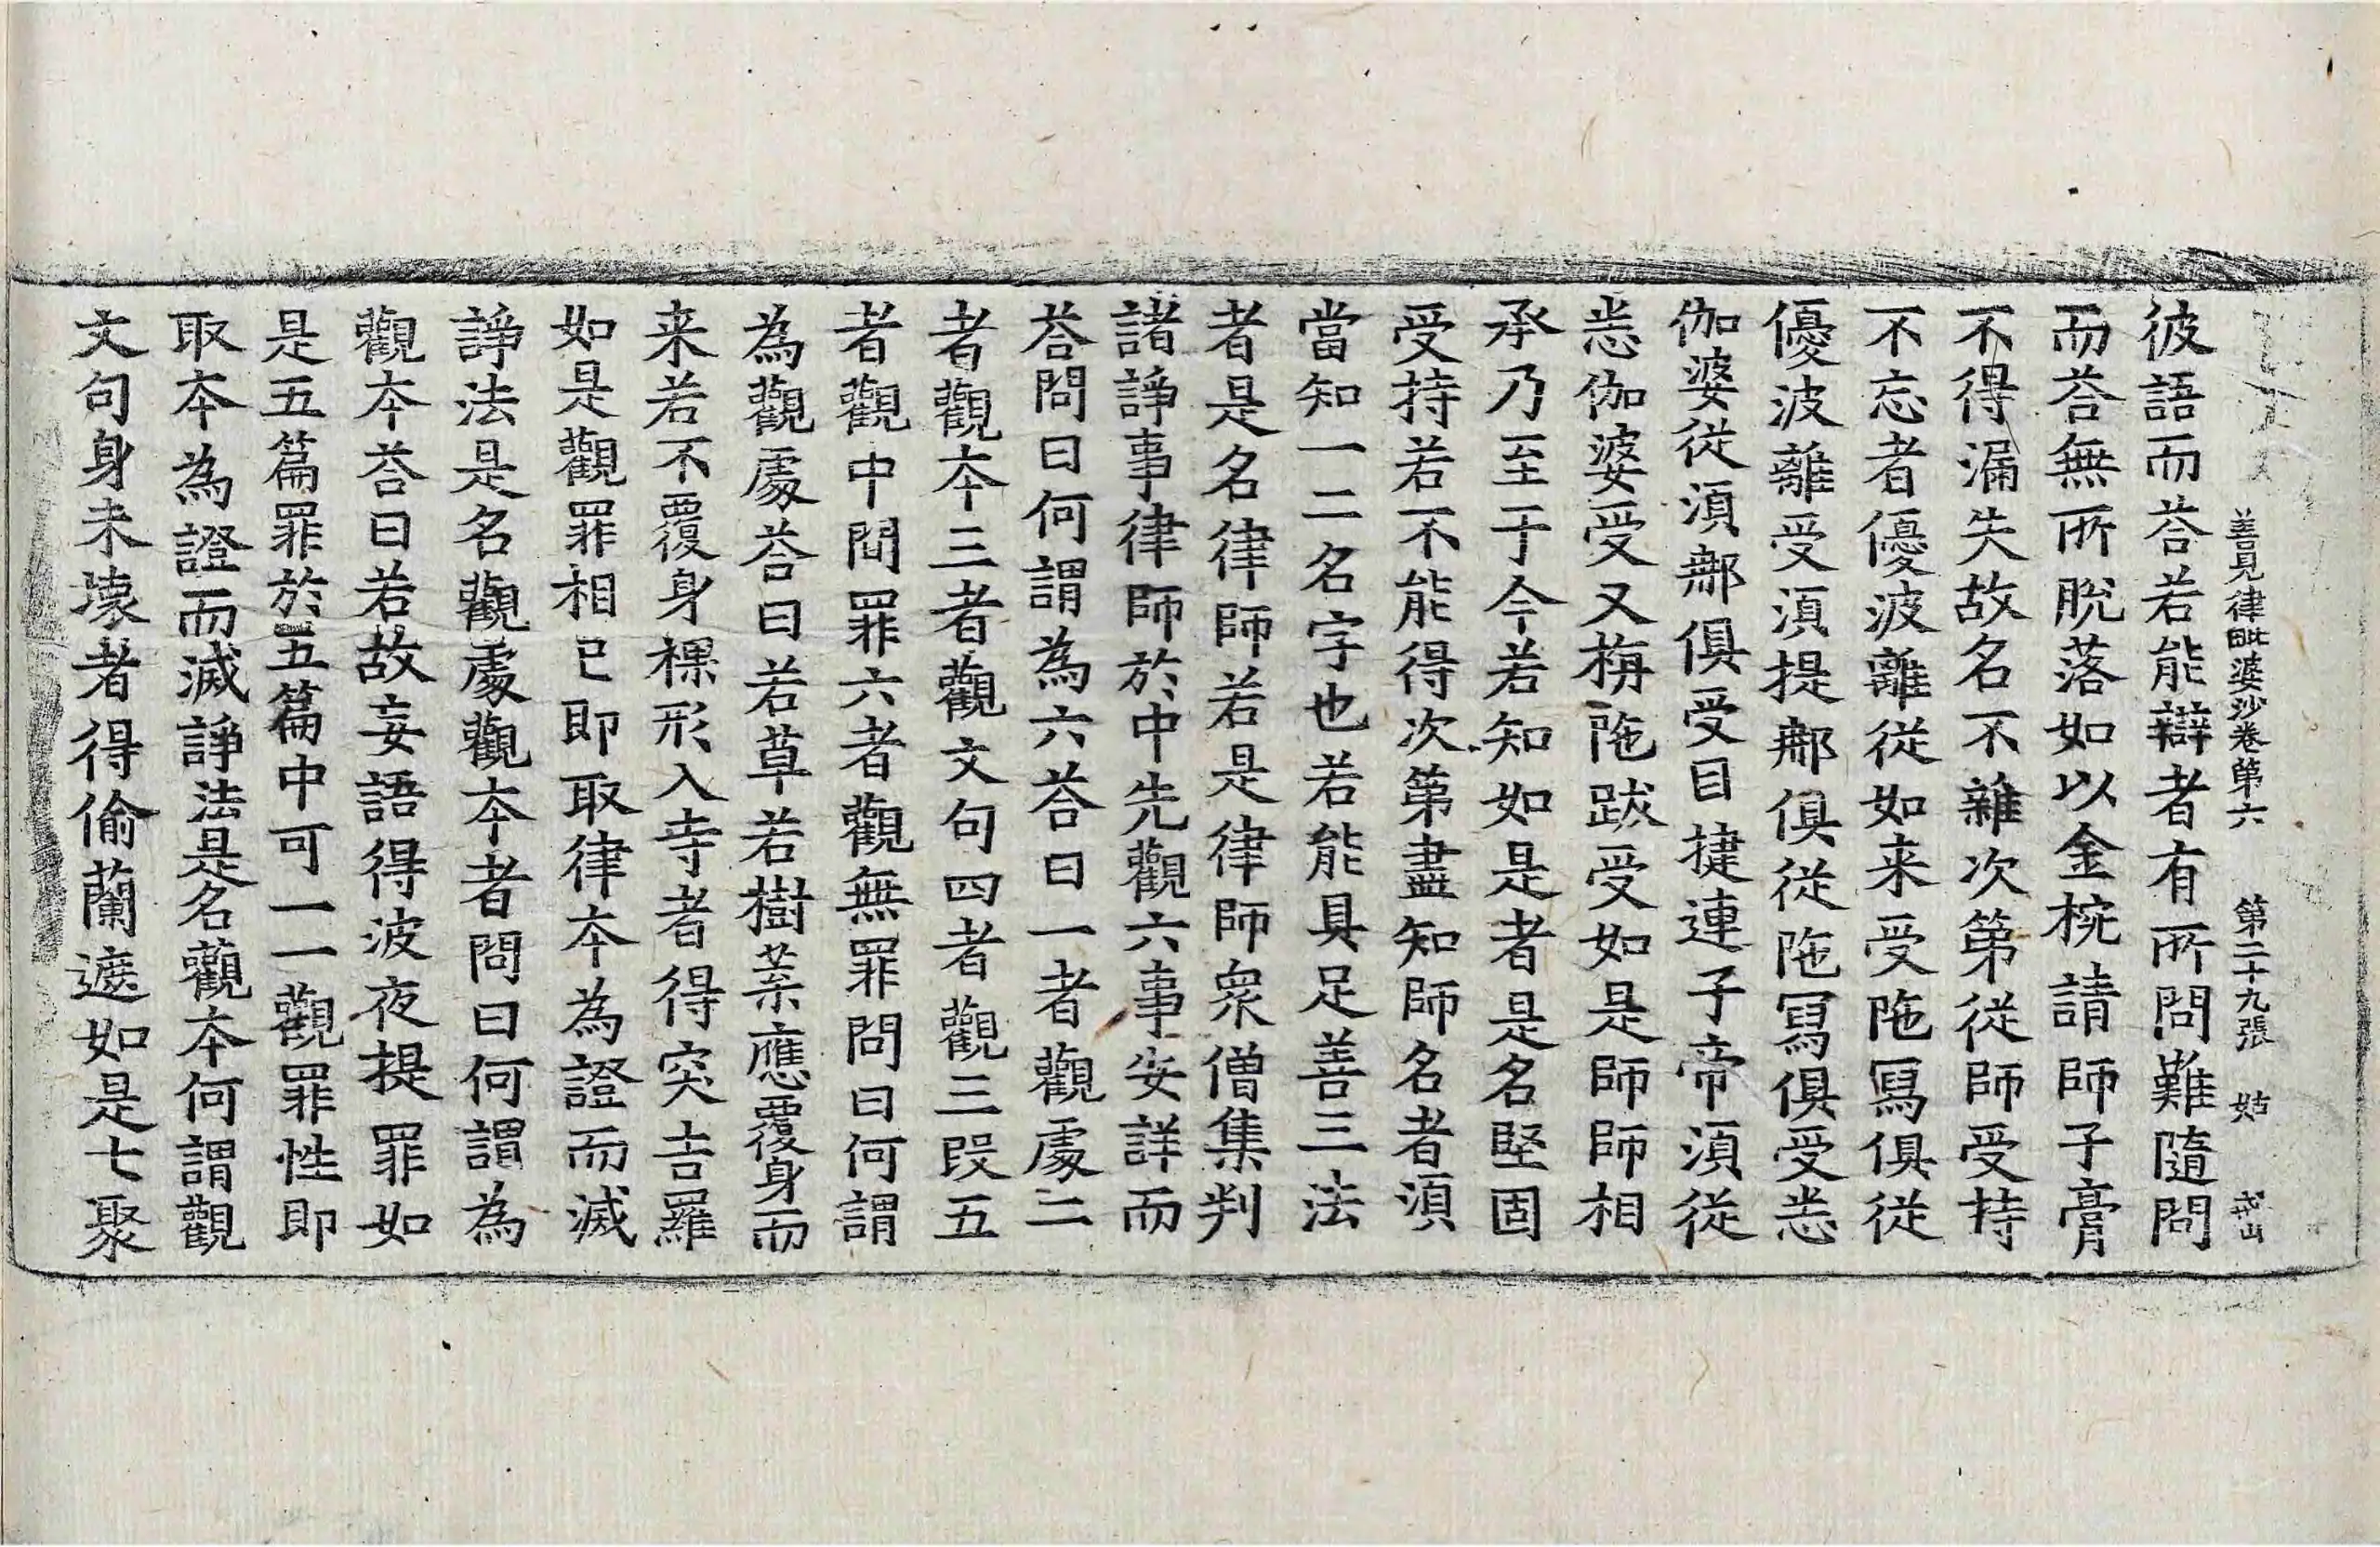 善見律毗婆沙卷第六 第二十九張 姑
彼語而荅若能辯者有所問難隨問
而荅無所脫落如以金椀請師子膏
不得漏失故名不雜次第從師受持
不忘者優波離從如来受陁冩俱從
優波離受湏提郍俱從陁冩俱受悉
伽婆從湏郍俱受目揵連子帝湏從
悉伽婆受又栴陁跋受如是師師相
承乃至于今若知如是者是名堅固
受持若不能得次第盡知師名者湏
當知一二名字也若能具足善三法
者是名律師若是律師衆僧集判
諸諍事律師於中先觀六事安詳而
荅問曰何謂為六荅曰一者觀處二
者觀夲三者觀文句四者觀三叚五
者觀中閒罪六者觀無罪問曰何謂
為觀處荅曰若草若樹葉應覆身而
来若不覆身裸形入寺者得突吉羅
如是觀罪相已即取律夲為證而滅
諍法是名觀處觀夲者問曰何謂為
觀夲荅曰若故妄語得波夜提罪如
是五篇罪於五篇中可一一觀罪性即
取夲為證而滅諍法是名觀夲何謂觀
文句身未壞者得偷蘭遮如是七聚